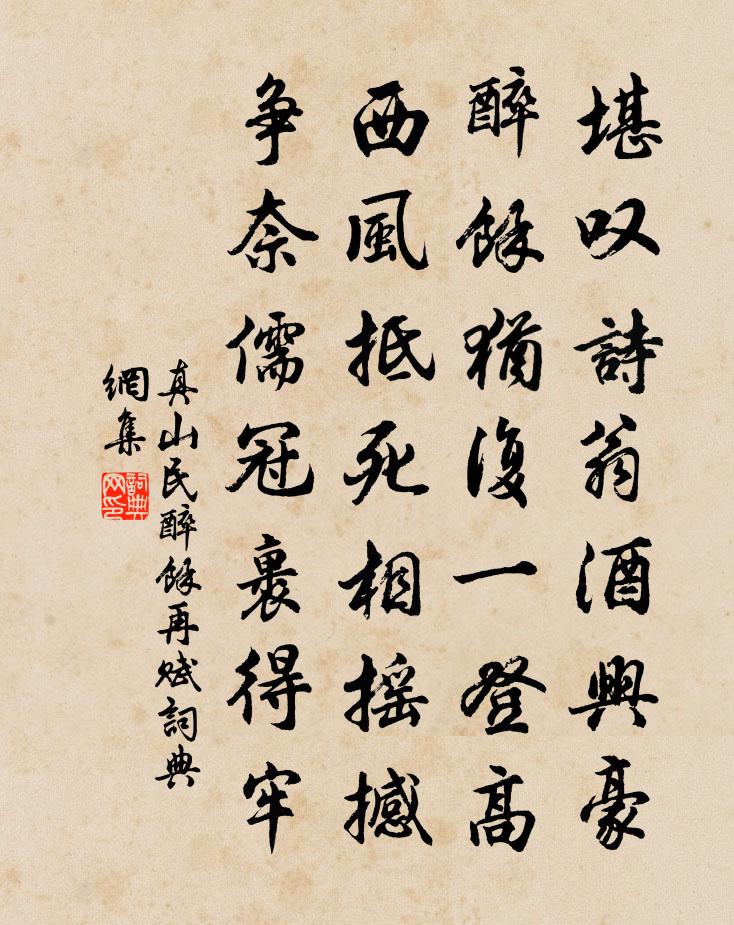 堪叹詩翁酒興豪
醉餘猶復一登高
西風抵死相摇撼
争奈儒冠裹得牢
真山民醉餘再赋詞典
網集
詞典
网印